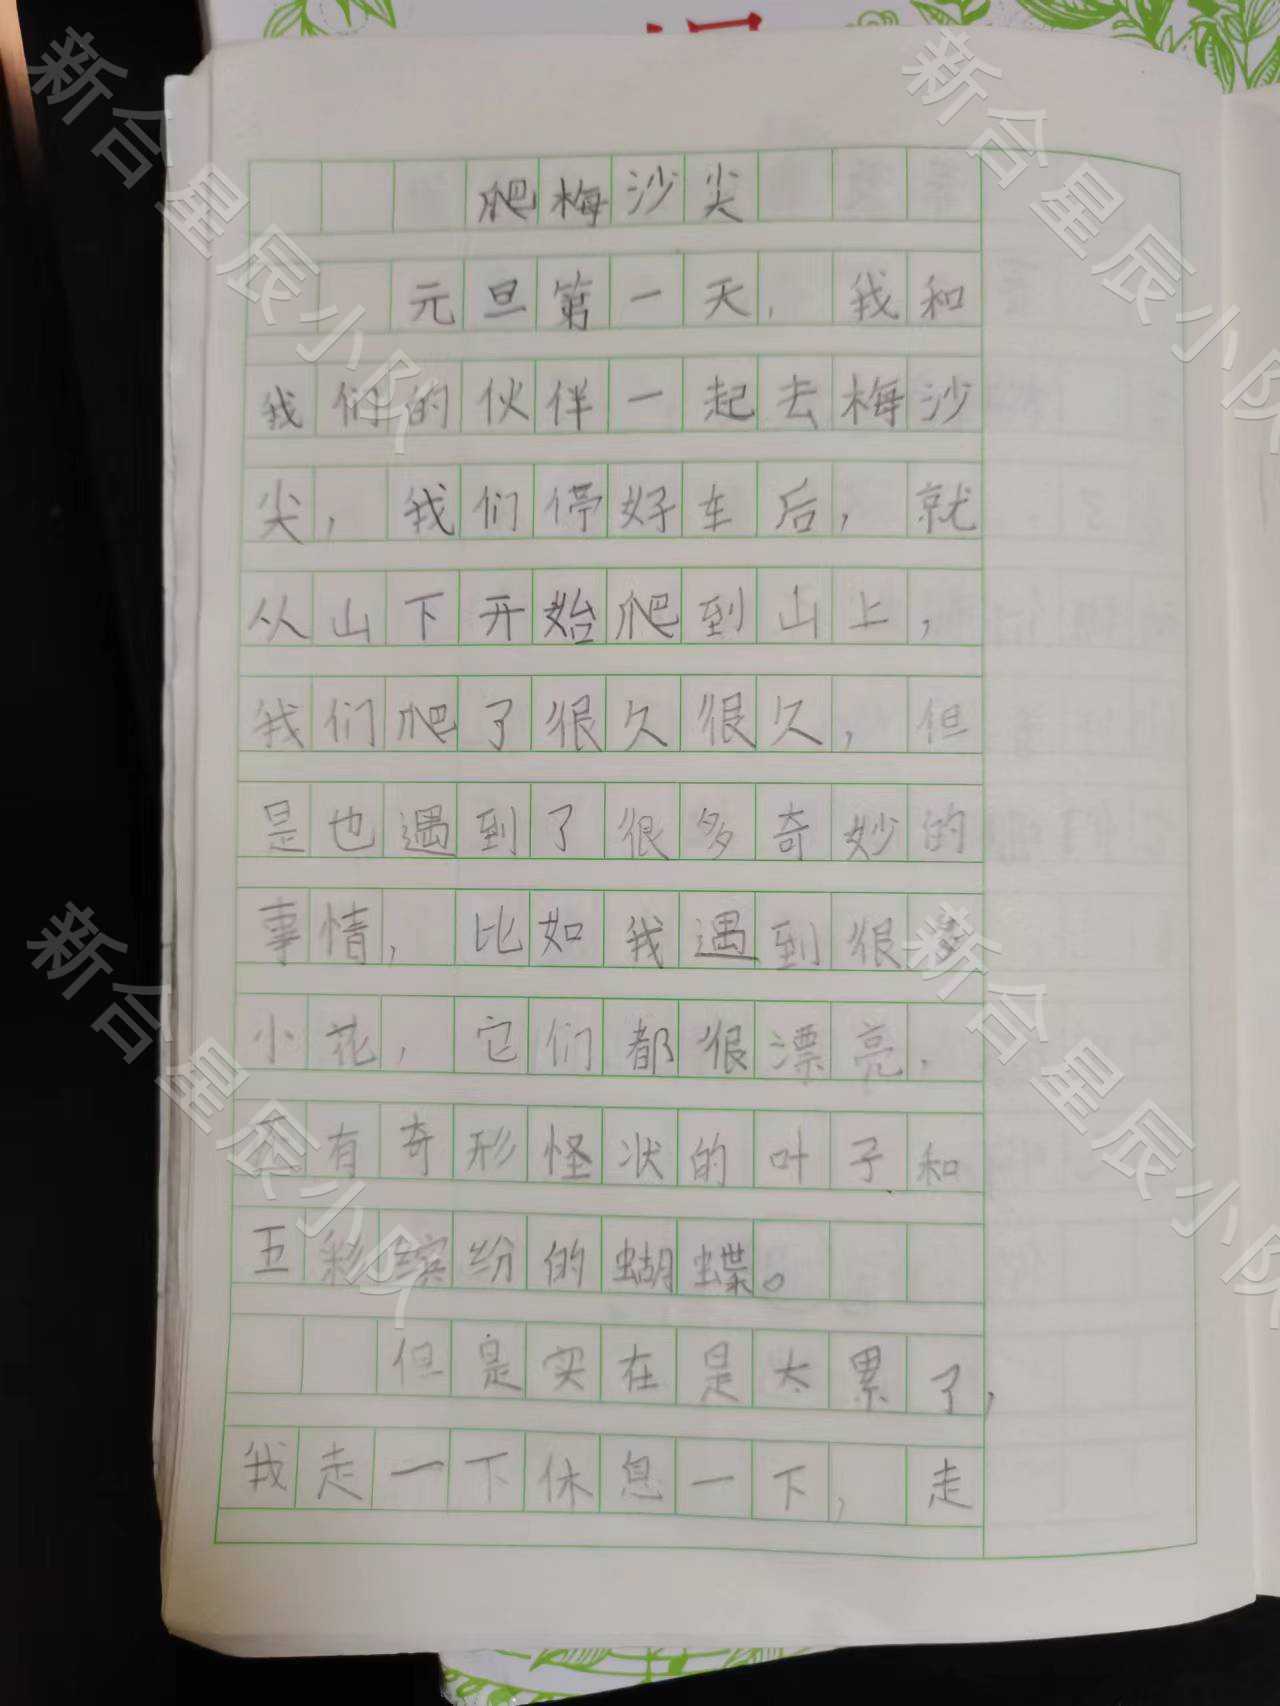 爬梅沙尖
元旦第一天，我和
我们的伙伴一起去梅沙
尖，我们停好车后，就
从山下开始爬到山上，
我们爬了很久很久，但
是也遇到了很多奇妙的
事情，比如我遇到很多
小花，它们都很漂亮．
还有奇形怪状的叶子和
五彩缤纷的蝴蝶。
但是实在是太累了，
我走一下休息一下，走
新合星辰小队
新合星辰小队
新合星辰小队
新合星辰小队